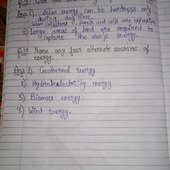 Ans 1. Solar energy can be harness only
during day time.
Solar cookers, panels and cells are expensive
3) Large areas of land are required to
capture the sun's energy.
Q.10 Name any four alternate sources of
energy.
Ans 1. Geothermal energy
2) Hydroelectricity energy
3) Biomass energy
4) Wind energy.